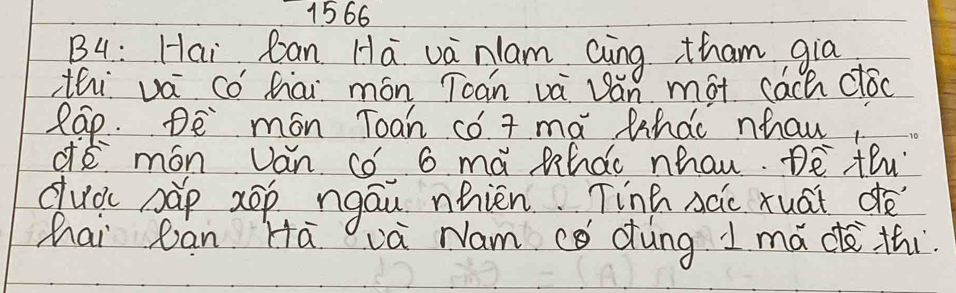 1566
B4: Hai bạn Hà và Nam cùng tham gia
thi và có hai môn Toán và Văn một cách độc
lập. Đề môn Toán có 7 mã khác nhau,
đề môn Văn có 6 mã khác nhau. Đề thi
được sắp xếp ngẫu nhiên. Tính xác xuất để
hai bạn Hà và Nam có đúng 1 mã đề thi.